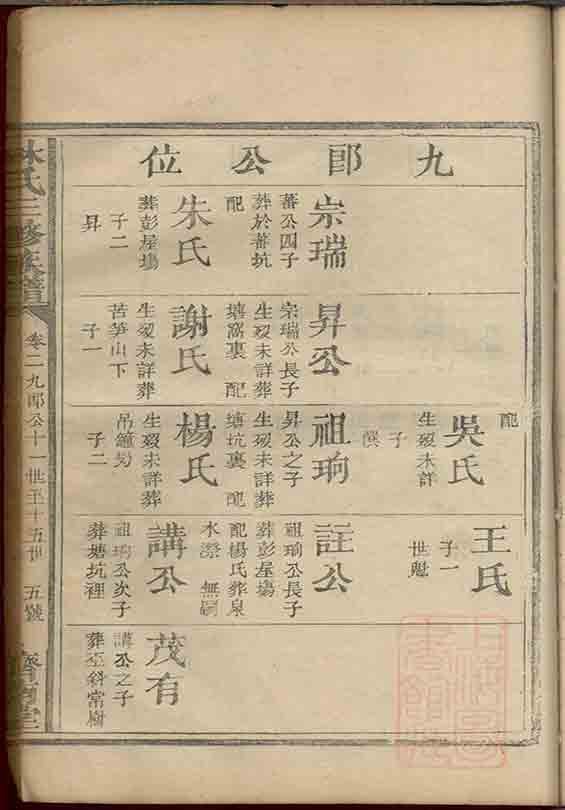 九郎公位
吳氏
王氏
子一
世魁
配
生歿未詳
子
僎
宗瑞
蕃公四子
葬於蕃坑
配
朱氏
葬彭屋塲
子二
昇
昇公
宗瑞公長子
生歿未詳葬
塘窩裏 配
謝氏
生歿未詳葬
苦笋山下
子一
祖珦
昇公之子
生歿未詳葬
塘坑裏 配
楊氏
生歿未詳葬
吊鐘坳
子二
註公
祖珦公長子
葬彭屋塲
配楊氏葬泉
水漈 無嗣
講公
祖珦公次子
葬塘坑裡
茂有
講公之子
葬巫斜常樹
林氏三修族譜
卷二九郎公十一世至十五世 五號
濟南堂